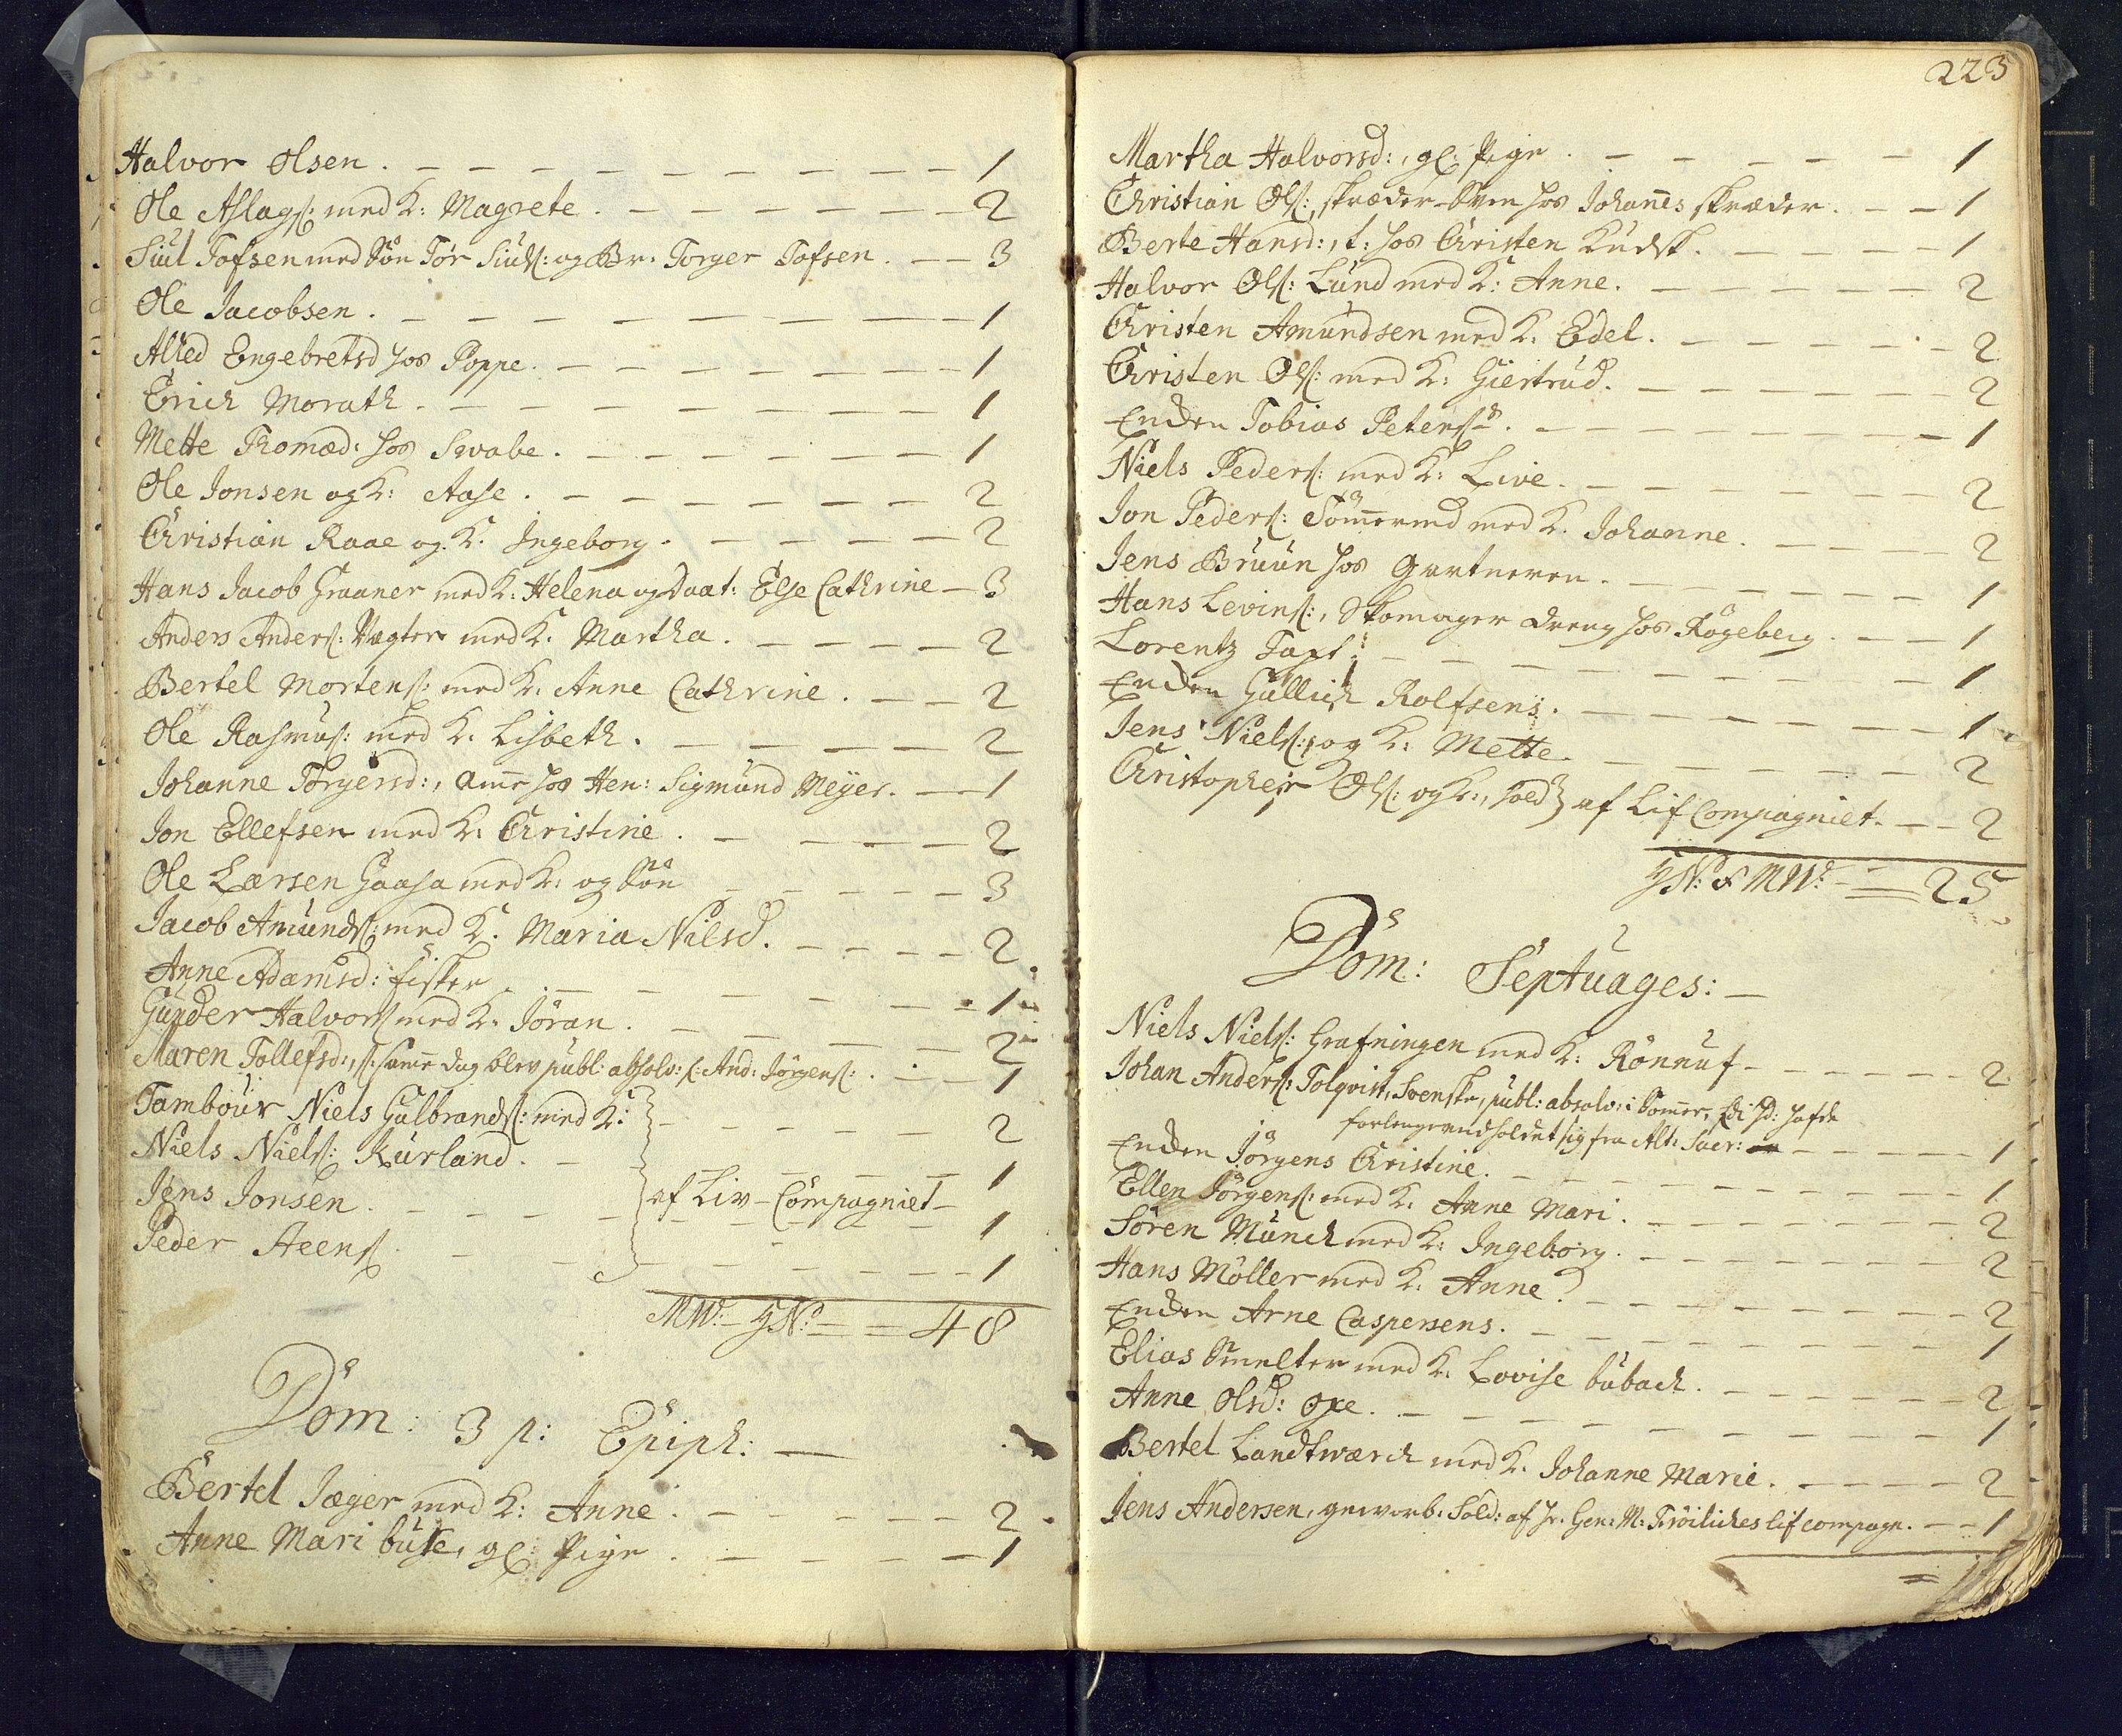 Halvor Olsen. — — — — — — — — 1
Ole Aslags: med K: Magrete. — — — — — 2
Siul Tofsen med Søn Tør Siuls: og Br. Torger Tofsen. — — 3
Ole Jacobsen. — — — — — — — — 1
Alhed Engebretsd hos Poppe. — — — — — — 1
Erich Morath. — — — — — — — 1
Mette Thomæd: hos Svabe. — — — — — — 1
Ole Jonsen og K: Aase. — — — — — — 2
Christian Raae og K. Ingeborg. — — — — — 2
Hans Jacob Graaner med K: Helena og Daat: Else Cathrine — 3
Anders Anders: Vægter med K. Martha. — — — — 2
Bertel Mortens: med K. Anne Cathrine. — — — 2
Ole Rasmus: med K. Lisbeth. — — — — — 2
Johanne Torgersd:, Amme hos Hen: Sigmund Meyer. — — 1
Jon Ellefsen med K: Christine. — — — — 2
Ole Larsen Gaasa med K: og Søn — — — — 3
Jacob Amunds: med K. Maria Nilsd. — — — — 2
Anne Adamsd: fisker. — — — — — — 1
Gunder Halvors med K. Jøran. — — — — — 2
Maren Tollefsd:, s: samme dag blev publ: absolv: s: And: Jørgens: — — 1
Tambour Niels Gulbrands: med K: — — — — — 2
Niels Niels: Kurland. — — — — — 1
Jens Jonsen. — — — af Liv-Compagniet — 1
Peder Steens — — — — — — 1
MW: — YN: — = 48
Dom: 3 p: Epiph: —
Bertel Jæger med K: Anne. — — — — — 2
Anne Mari buse, gl: Pige. — — — — 1
223
Martha Halvorsd:, gl: Pige. — — — — — 1
Christian Ols:, skræder-Sven hos Johannes skræder. — — 1
Berte Hansd:, t: hos Christen Kudsk. — — — — 1
Halvor Ols: Lund med K: Anne. — — — — — 2
Christen Amundsen med K. Edel. — — — — — 2
Christen Ols: med K: Giertrud. — — — — — 2
Enken Tobias Peters — — — — — — — 1
Niels Peders: med K: Live. — — — — — — 2
Jon Peders: Tømmermd med K. Johanne. — — — — 2
Jens Bruun hos Gartneren. — — — — — — 1
Hans Levins:, Skomager dreng hos Røgeberg. — — — 1
Lorentz Taxt: — — — — — — — 1
Enken Gullich Rolfsens. — — — — — — 1
Jens Niels: og K: Mette. — — — — — — 2
Christopher Ols: og K:, sold af Lif Compagniet. — — 2
YN: & MW: — = 25
Dom: Septuages: —
Niels Niels: Grafningen med K: Rønnuf — — — — — 2
Johan Anders: Tolqvist, Svenske, publ: absolv: i Sommer, hafde
forlenge undholdet sig fra Alt: Sacr: — — — — 1
Enken Jørgens Christine. — — — — — — 1
Ellen Jørgens: med K. Anne Mari. — — — — — 2
Søren Munch med K: Ingeborg. — — — — — 2
Hans Møller med K. Anne. — — — — — — 2
Enken Arne Caspersens. — — — — — — 1
Elias Smelter med K. Lovise bubach. — — — — 2
Anne Olsd: Oxe. — — — — — — — 1
Bertel Landtværch med K. Johanne Marie. — — — — 2
Jens Andersen, gevorb: Sold: af Hr. Gen: M: Frøiliches lif compagn. — — 1